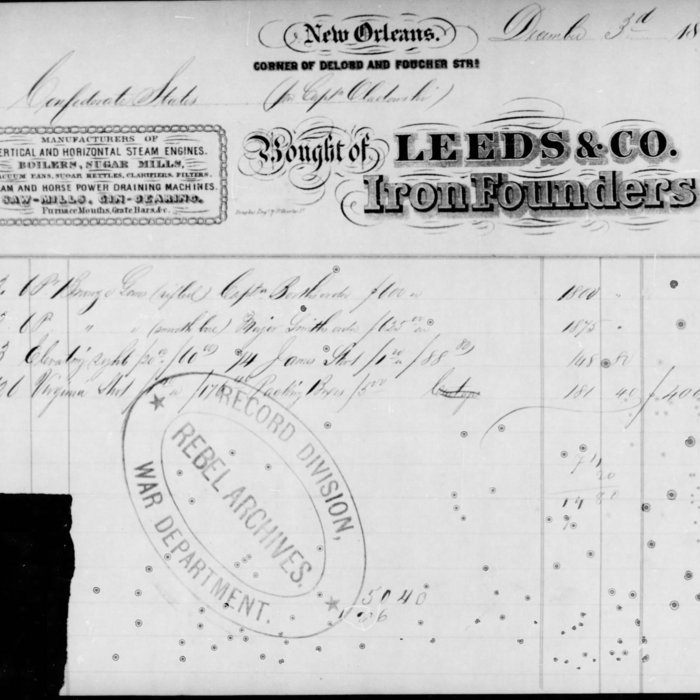 New Orleans. December 3d 18
CORNER OF DELORD AND FOUCHER STRS
Confederate States (for Captn Oladowski)
MANUFACTURERS OF
ERTICAL AND HORIZONTAL STEAM ENGINES.
BOILERS, SUGAR MILLS,
ACUUM PANS, SUGAR KETTLES, CLARIFIERS, FILTERS,
AM AND HORSE POWER DRAINING MACHINES.
SAW-MILLS, GIN-GEARING.
Furnace Mouths, Grate Bars, &c.
Bought of LEEDS & CO.
Iron Founders
6 Pr Bronze Guns (rifled) Captn order $600 1800
6 Pr " " (smooth bore) Major Smiths order $625 00 1875
3 Elevating sights 14 James Shot $88 80 148 80
26 Virginia Shot Packing Boxes $5 00 181 40
RECORD DIVISION,
REBEL ARCHIVES.
WAR DEPARTMENT.
74
20
19 80
5040